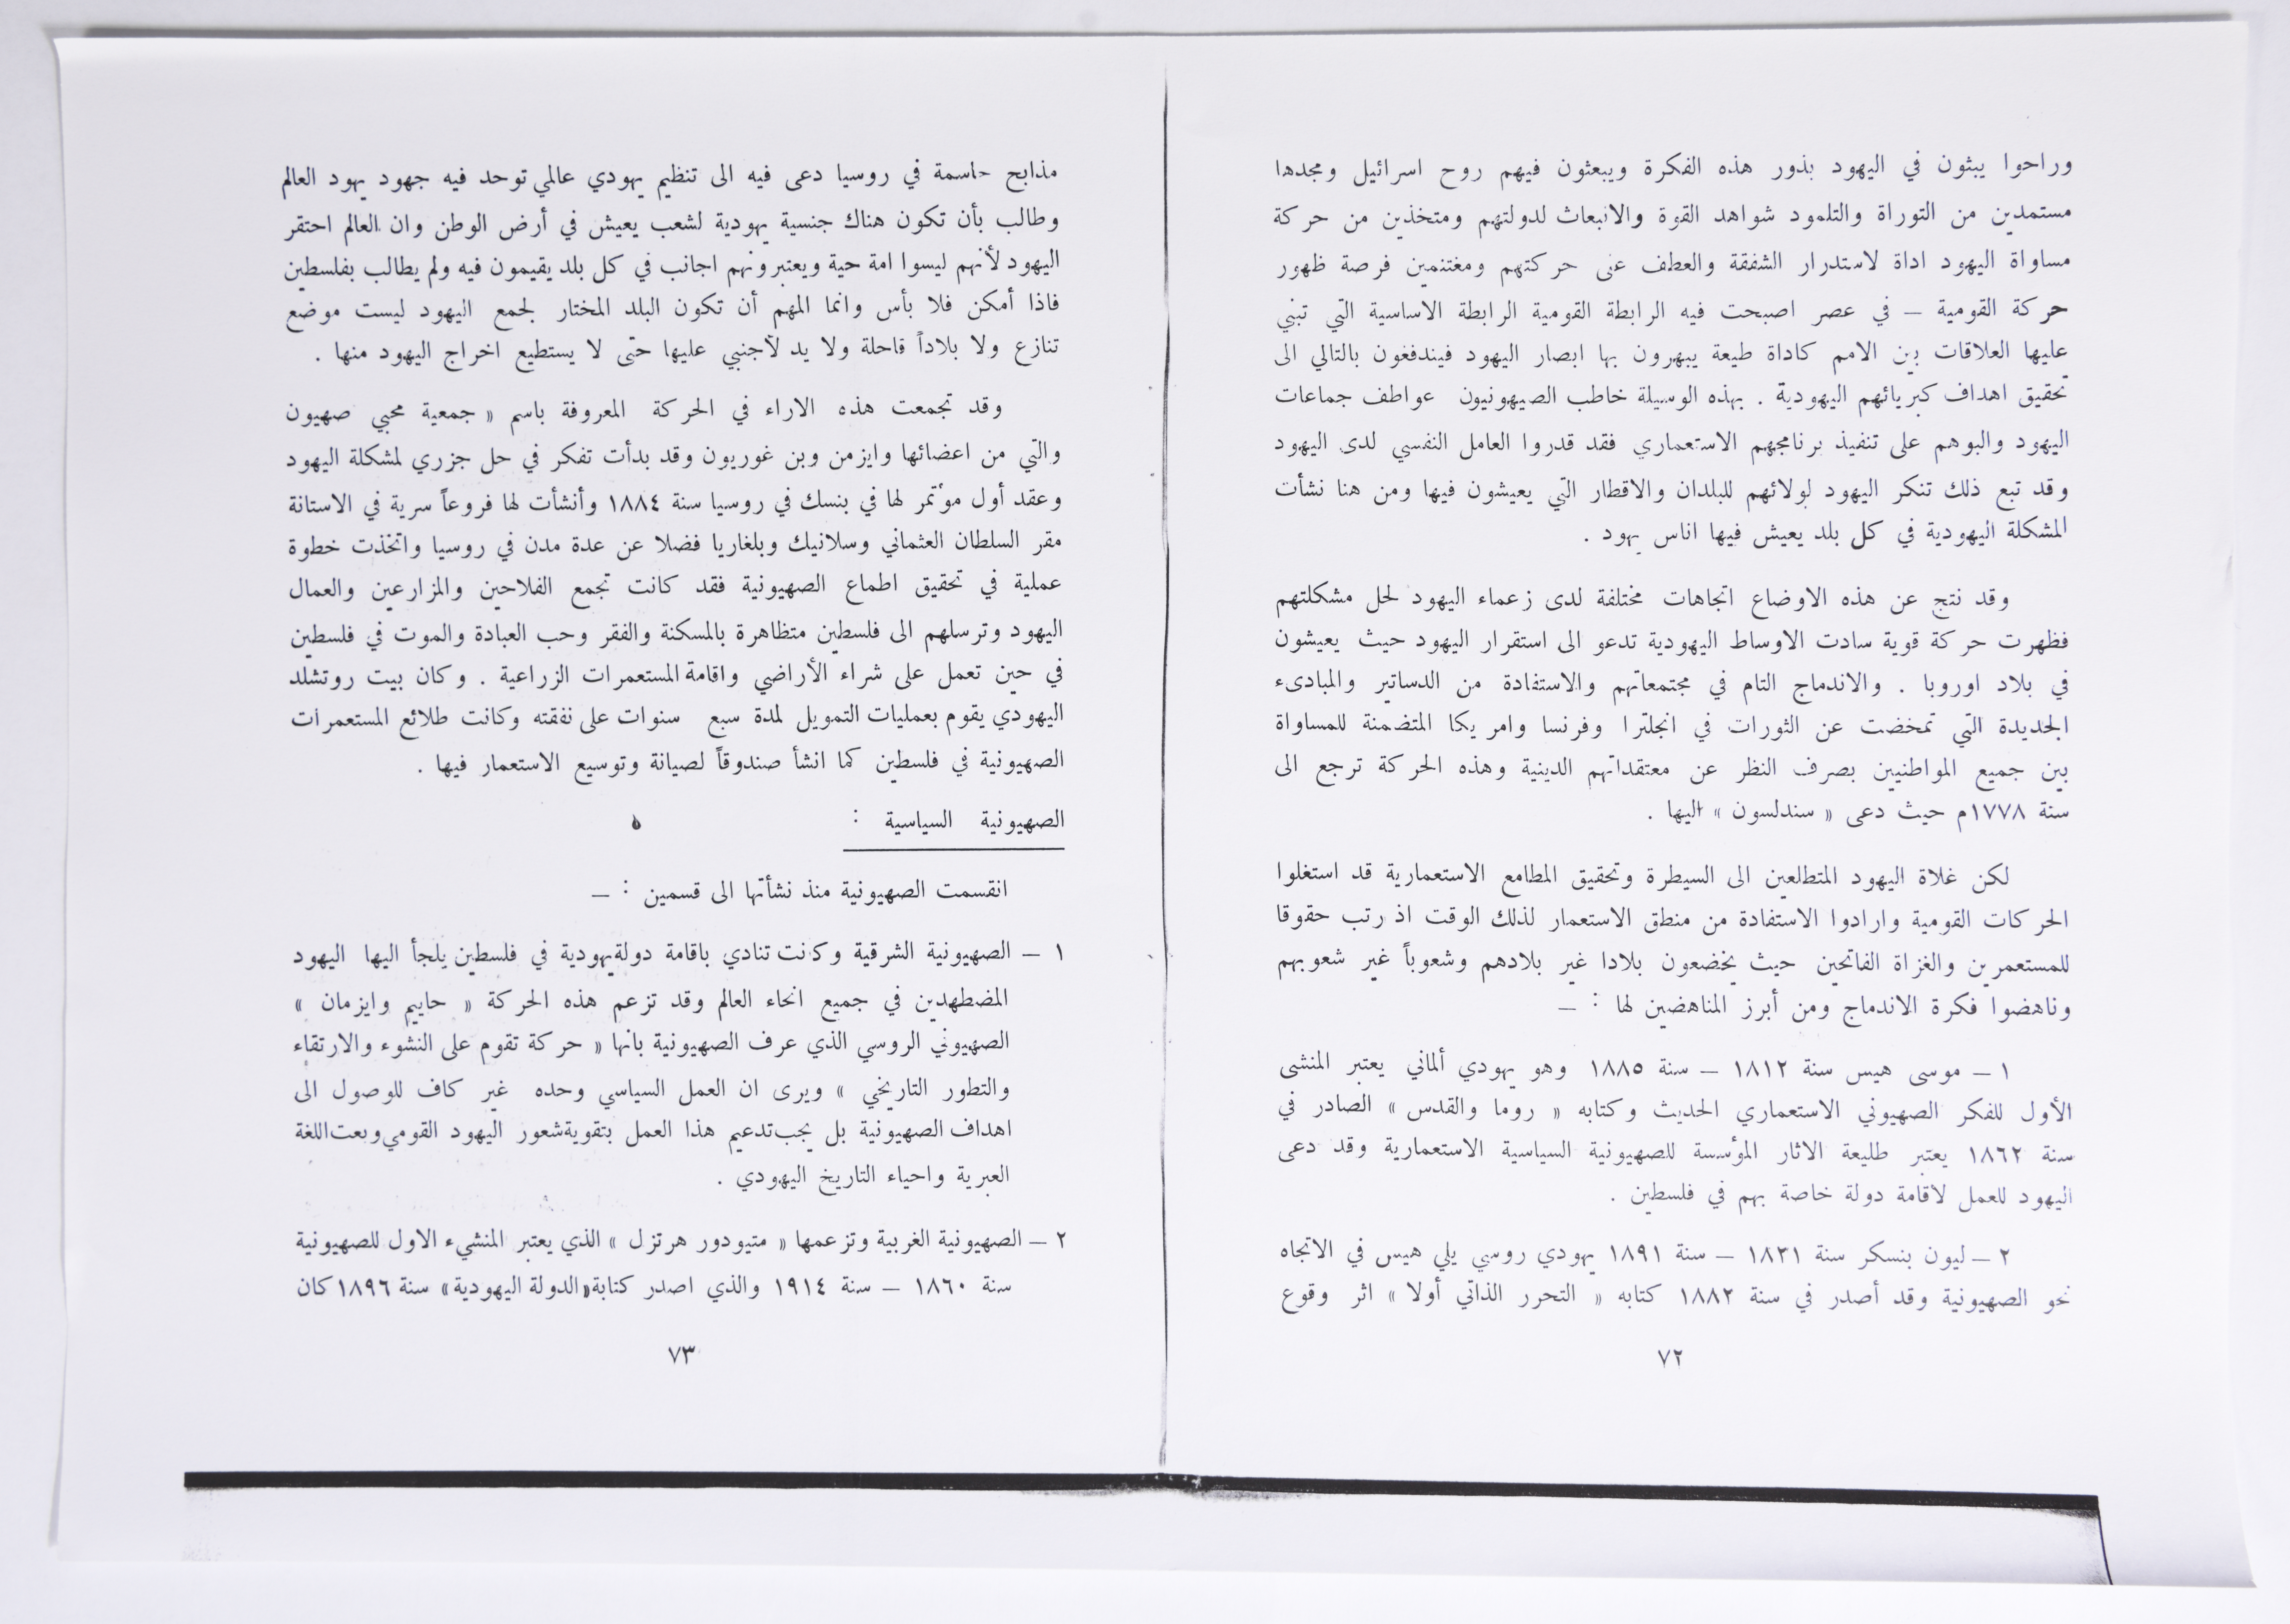 وراحوا يبثون في اليهود بذور هذه الفكرة ويبعثون فيهم روح اسرائيل ومجدها
مستمدين من التوراة والتلمود شواهد القوة والانبعاث لدولتهم ومتخذين من حركة
مساواة اليهود اداة لاستدرار الشفقة والعطف على حركتهم ومغتنمين فرصة ظهور
حركة القومية – في عصر اصبحت فيه الرابطة القومية الرابطة الاساسية التي تبنى
عليها العلاقات بين الامم كاداة طيعة يبهرون بها ابصار اليهود فيندفعون بالتالي الى
تحقيق اهداف كبريائهم اليهودية . بهذه الوسيلة خاطب الصيهونيون عواطف جماعات
اليهود والبوهم على تنفيذ برنامجهم الاستعماري فقد قدروا العامل النفسي لدى اليهود
وقد تبع ذلك تنكر اليهود لولائهم للبلدان والاقطار التي يعيشون فيها ومن هنا نشأت
المشكلة اليهودية في كل بلد يعيش فيها اناس يهود .
وقد نتج عن هذه الاوضاع اتجاهات مختلفة لدى زعماء اليهود لحل مشكلتهم
فظهرت حركة قوية سادت الاوساط اليهودية تدعو الى استقرار اليهود حيث يعيشون
في بلاد اوروبا . والاندماج التام في مجتمعاتهم والاستفادة من الدساتير والمبادىء
الجديدة التي تمخضت عن الثورات في انجلترا وفرنسا وامريكا المتضمنة للمساواة
بين جميع المواطنيين بصرف النظر عن معتقداتهم الدينية وهذه الحركة ترجع الى
سنة ١٧٧٨م حيث دعى « سندلسون » اليها .
لكن غلاة اليهود المتطلعين الى السيطرة وتحقيق المطامع الاستعمارية قد استغلوا
الحركات القومية وارادوا الاستفادة من منطق الاستعمار لذلك الوقت اذ رتب حقوقا
للمستعمرين والغزاة الفاتحين حيث يخضعون بلادا غير بلادهم وشعوباً غير شعوبهم
وناهضوا فكرة الاندماج ومن أبرز المناهضين لها : –
١ – موسى هيس سنة ١٨١٢ – سنة ١٨٨٥ وهو يهودي ألماني يعتبر المنشى
الأول للفكر الصهيوني الاستعماري الحديث وكتابه « روما والقدس » الصادر في
سنة ١٨٦٢ يعتبر طليعة الاثار المؤسسة للصهيونية السياسية الاستعمارية وقد دعى
اليهود للعمل لاقامة دولة خاصة بهم في فلسطين .
٢ – ليون بنسكر سنة ١٨٣١ – سنة ١٨٩١ يهودي روسي يلي هيس في الاتجاه
نحو الصهيونية وقد أصدر في سنة ١٨٨٢ كتابه « التحرر الذاتي أولا » اثر وقوع
٧٢
مذابح حاسمة في روسيا دعى فيه الى تنظيم يهودي عالمي توحد فيه جهود يهود العالم
وطالب بأن تكون هناك جنسية يهودية لشعب يعيش في أرض الوطن وان العالم احتقر
اليهود لأنهم ليسوا امة حية ويعتبرونهم اجانب في كل بلد يقيمون فيه ولم يطالب بفلسطين
فاذا أمكن فلا بأس وانما المهم أن تكون البلد المختار لجمع اليهود ليست موضع
تنازع ولا بلاداً قاحلة ولا يد لأجنبي عليها حتى لا يستطيع اخراج اليهود منها .
وقد تجمعت هذه الاراء في الحركة المعروفة باسم « جمعية محبي صهيون
والتي من اعضائها وايزمن وبن غوريون وقد بدأت تفكر في حل جزري لمشكلة اليهود
وعقد أول مؤتمر لها في بنسك في روسيا سنة ١٨٨٤ وأنشأت لها فروعاً سرية في الاستانة
مقر السلطان العثماني وسلانيك وبلغاريا فضلا عن عدة مدن في روسيا واتخذت خطوة
عملية في تحقيق اطماع الصهيونية فقد كانت تجمع الفلاحين والمزارعين والعمال
اليهود وترسلهم الى فلسطين متظاهرة بالمسكنة والفقر وحب العبادة والموت في فلسطين
في حين تعمل على شراء الأراضي واقامة المستعمرات الزراعية . وكان بيت روتشلد
اليهودي يقوم بعمليات التمويل لمدة سبع سنوات على نفقته وكانت طلائع المستعمرات
الصهيونية في فلسطين كما انشأ صندوقاً لصيانة وتوسيع الاستعمار فيها .
الصهيونية السياسية :
انقسمت الصهيونية منذ نشأتها الى قسمين : –
١ – الصهيونية الشرقية وكانت تنادي باقامة دولة يهودية في فلسطين يلجأ اليها اليهود
المضطهدين في جميع انحاء العالم وقد تزعم هذه الحركة « حاييم وايزمان »
الصهيوني الروسي الذي عرف الصهيونية بانها « حركة تقوم على النشوء والارتقاء
والتطور التاريخي » ويرى ان العمل السياسي وحده غير كاف للوصول الى
اهداف الصهيونية بل يجب تدعيم هذا العمل بتقوية شعور اليهود القومي وبعث اللغة
العبرية واحياء التاريخ اليهودي .
٢ – الصهيونية الغربية وتزعمها « متيودور هرتزل » الذي يعتبر المنشيء الاول للصهيونية
سنة ١٨٦٠ – سنة ١٩١٤ والذي اصدر كتابة «الدولة اليهودية» سنة ١٨٩٦ كان
٧٣